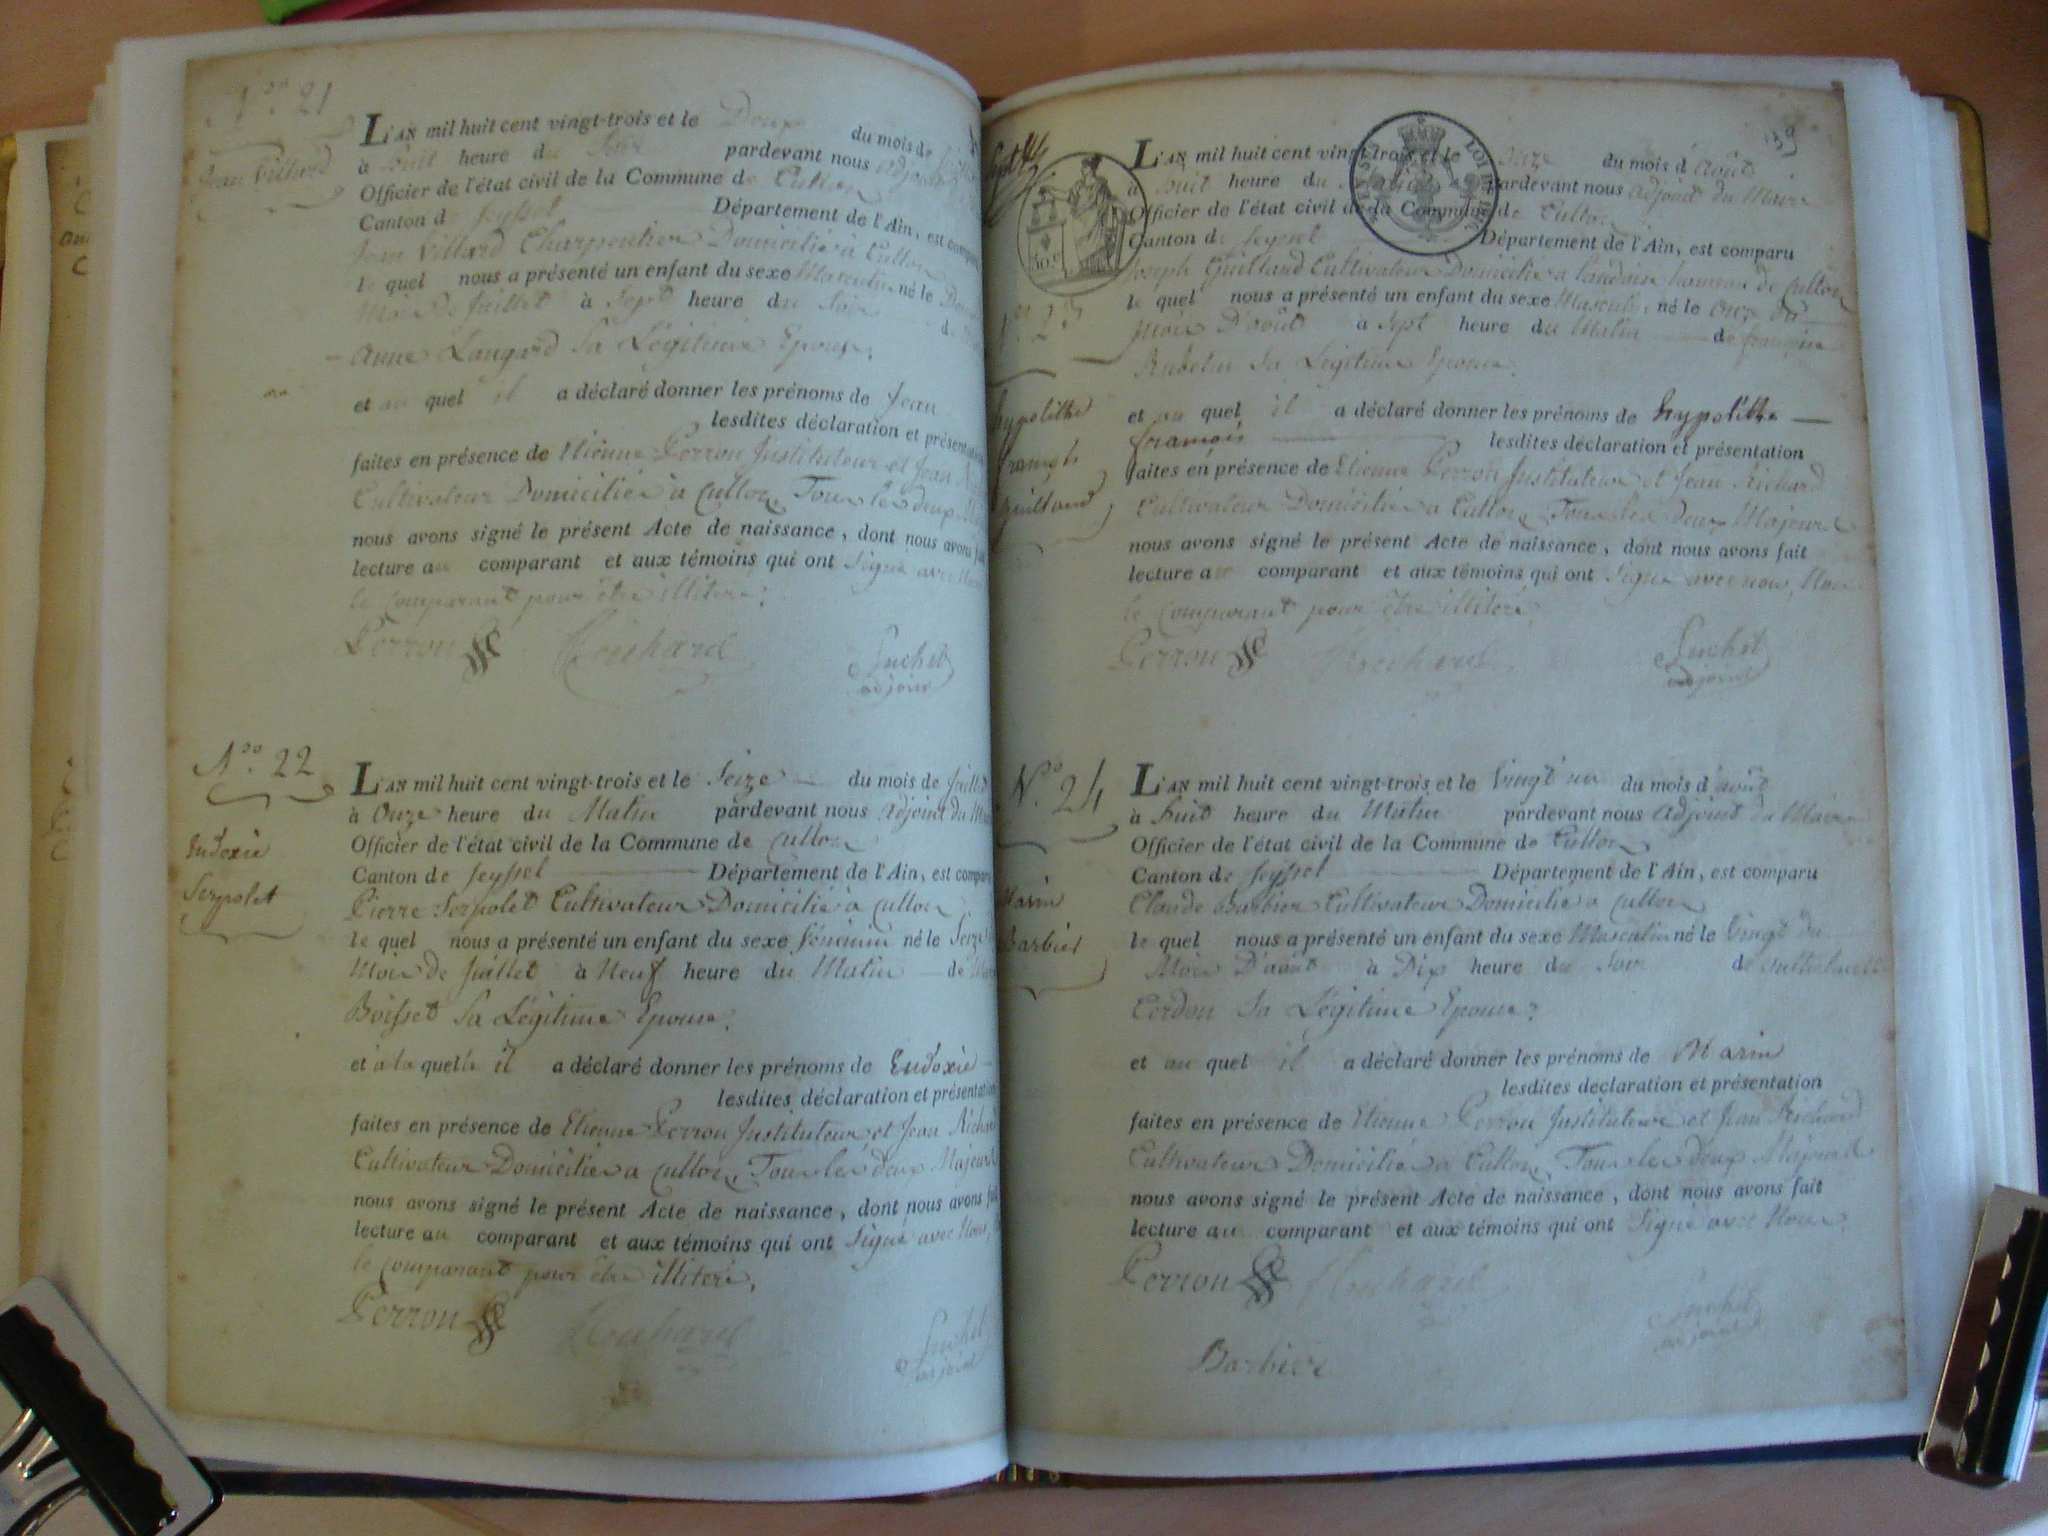 N.° 21
Jean Villard
L'AN mil huit cent vingt-trois et le Douze du mois de
à huit heure du Soir pardevant nous adjoint
Officier de l'état civil de la Commune de Culloz
Canton de Seyssel Département de l'Ain, est comparu
Jean Villard Charpentier Domicilié à Culloz
le quel nous a présenté un enfant du sexe Masculin né le
Mois De Juillet à Sept heure du Soir
Anne Laugard Sa Légitime Epouse.
et au quel il a déclaré donner les prénoms de Jean
lesdites déclaration et présentation
faites en présence de Etienne Perron Instituteur et Jean
Cultivateur Domicilié à Culloz, Tous les deux
nous avons signé le présent Acte de naissance, dont nous avons fait
lecture au comparant et aux témoins qui ont Signé avec Nous
le Comparant pour être illiteré.
Perron Richard Suchet
adjoint
N.° 22
Eudoxie
Serpolet
L'AN mil huit cent vingt-trois et le Seize du mois de Juillet
à Onze heure du Matin pardevant nous Adjoint du Maire
Officier de l'état civil de la Commune de Culloz
Canton de Seyssel Département de l'Ain, est comparu
Pierre Serpolet Cultivateur Domicilié à Culloz
le quel nous a présenté un enfant du sexe féminin né le Seize
Mois de Juillet à Neuf heure du Matin de
Boisset Sa Légitime Epouse.
et à la quelle il a déclaré donner les prénoms de Eudoxie
lesdites déclaration et présentation
faites en présence de Etienne Perron Instituteur et Jean Richard
Cultivateur Domicilié a Culloz, Tous les deux Majeurs
nous avons signé le présent Acte de naissance, dont nous avons fait
lecture au comparant et aux témoins qui ont Signé avec Nous,
le Comparant pour être illiteré.
Perron Richard Suchet
adjoint
39
N.° 23
hypolithe
françois
Guilland
L'AN mil huit cent vingt-trois et le onze du mois d'août
à huit heure du Matin pardevant nous adjoint du Maire
Officier de l'état civil de la Commune de Culloz
Canton de Seyssel Département de l'Ain, est comparu
Joseph Guilland Cultivateur Domicilié a hameau de Culloz
le quel nous a présenté un enfant du sexe Masculin, né le Onze du
Mois D'août à Sept heure du Matin de françoise
Sa Légitime Epouse.
et au quel il a déclaré donner les prénoms de hypolithe
françois lesdites déclaration et présentation
faites en présence de Etienne Perron Instituteur et Jean Richard
Cultivateur Domicilié a Culloz, Tous les deux Majeurs
nous avons signé le présent Acte de naissance, dont nous avons fait
lecture au comparant et aux témoins qui ont Signé avec nous, Non
le Comparant pour être illiteré.
Perron Richard Suchet
adjoint
N.° 24
Marin
Barbier
L'AN mil huit cent vingt-trois et le Vingt un du mois d'août
à huit heure du Matin pardevant nous Adjoint du Maire
Officier de l'état civil de la Commune de Culloz
Canton de Seyssel Département de l'Ain, est comparu
Claude Barbier Cultivateur Domicilié a Culloz
le quel nous a présenté un enfant du sexe Masculin né le Vingt du
Mois D'août à Dix heure du Soir de
Cerdon Sa Légitime Epouse.
et au quel il a déclaré donner les prénoms de Marin
lesdites déclaration et présentation
faites en présence de Etienne Perron Instituteur et Jean Richard
Cultivateur Domicilié a Culloz, Tous les deux Majeurs
nous avons signé le présent Acte de naissance, dont nous avons fait
lecture au comparant et aux témoins qui ont Signé avec Nous.
Perron Richard Suchet
adjoint
Barbier